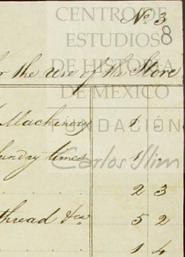 No 3
8
CENTRO DE
ESTUDIOS
DE HISTORIA
DE MEXICO
for the use of the Store
Machinery 1 -
FUNDACIÓN
Sundry times 1 -
Carlos Slim
2 3
thread &c 5 2
1 4